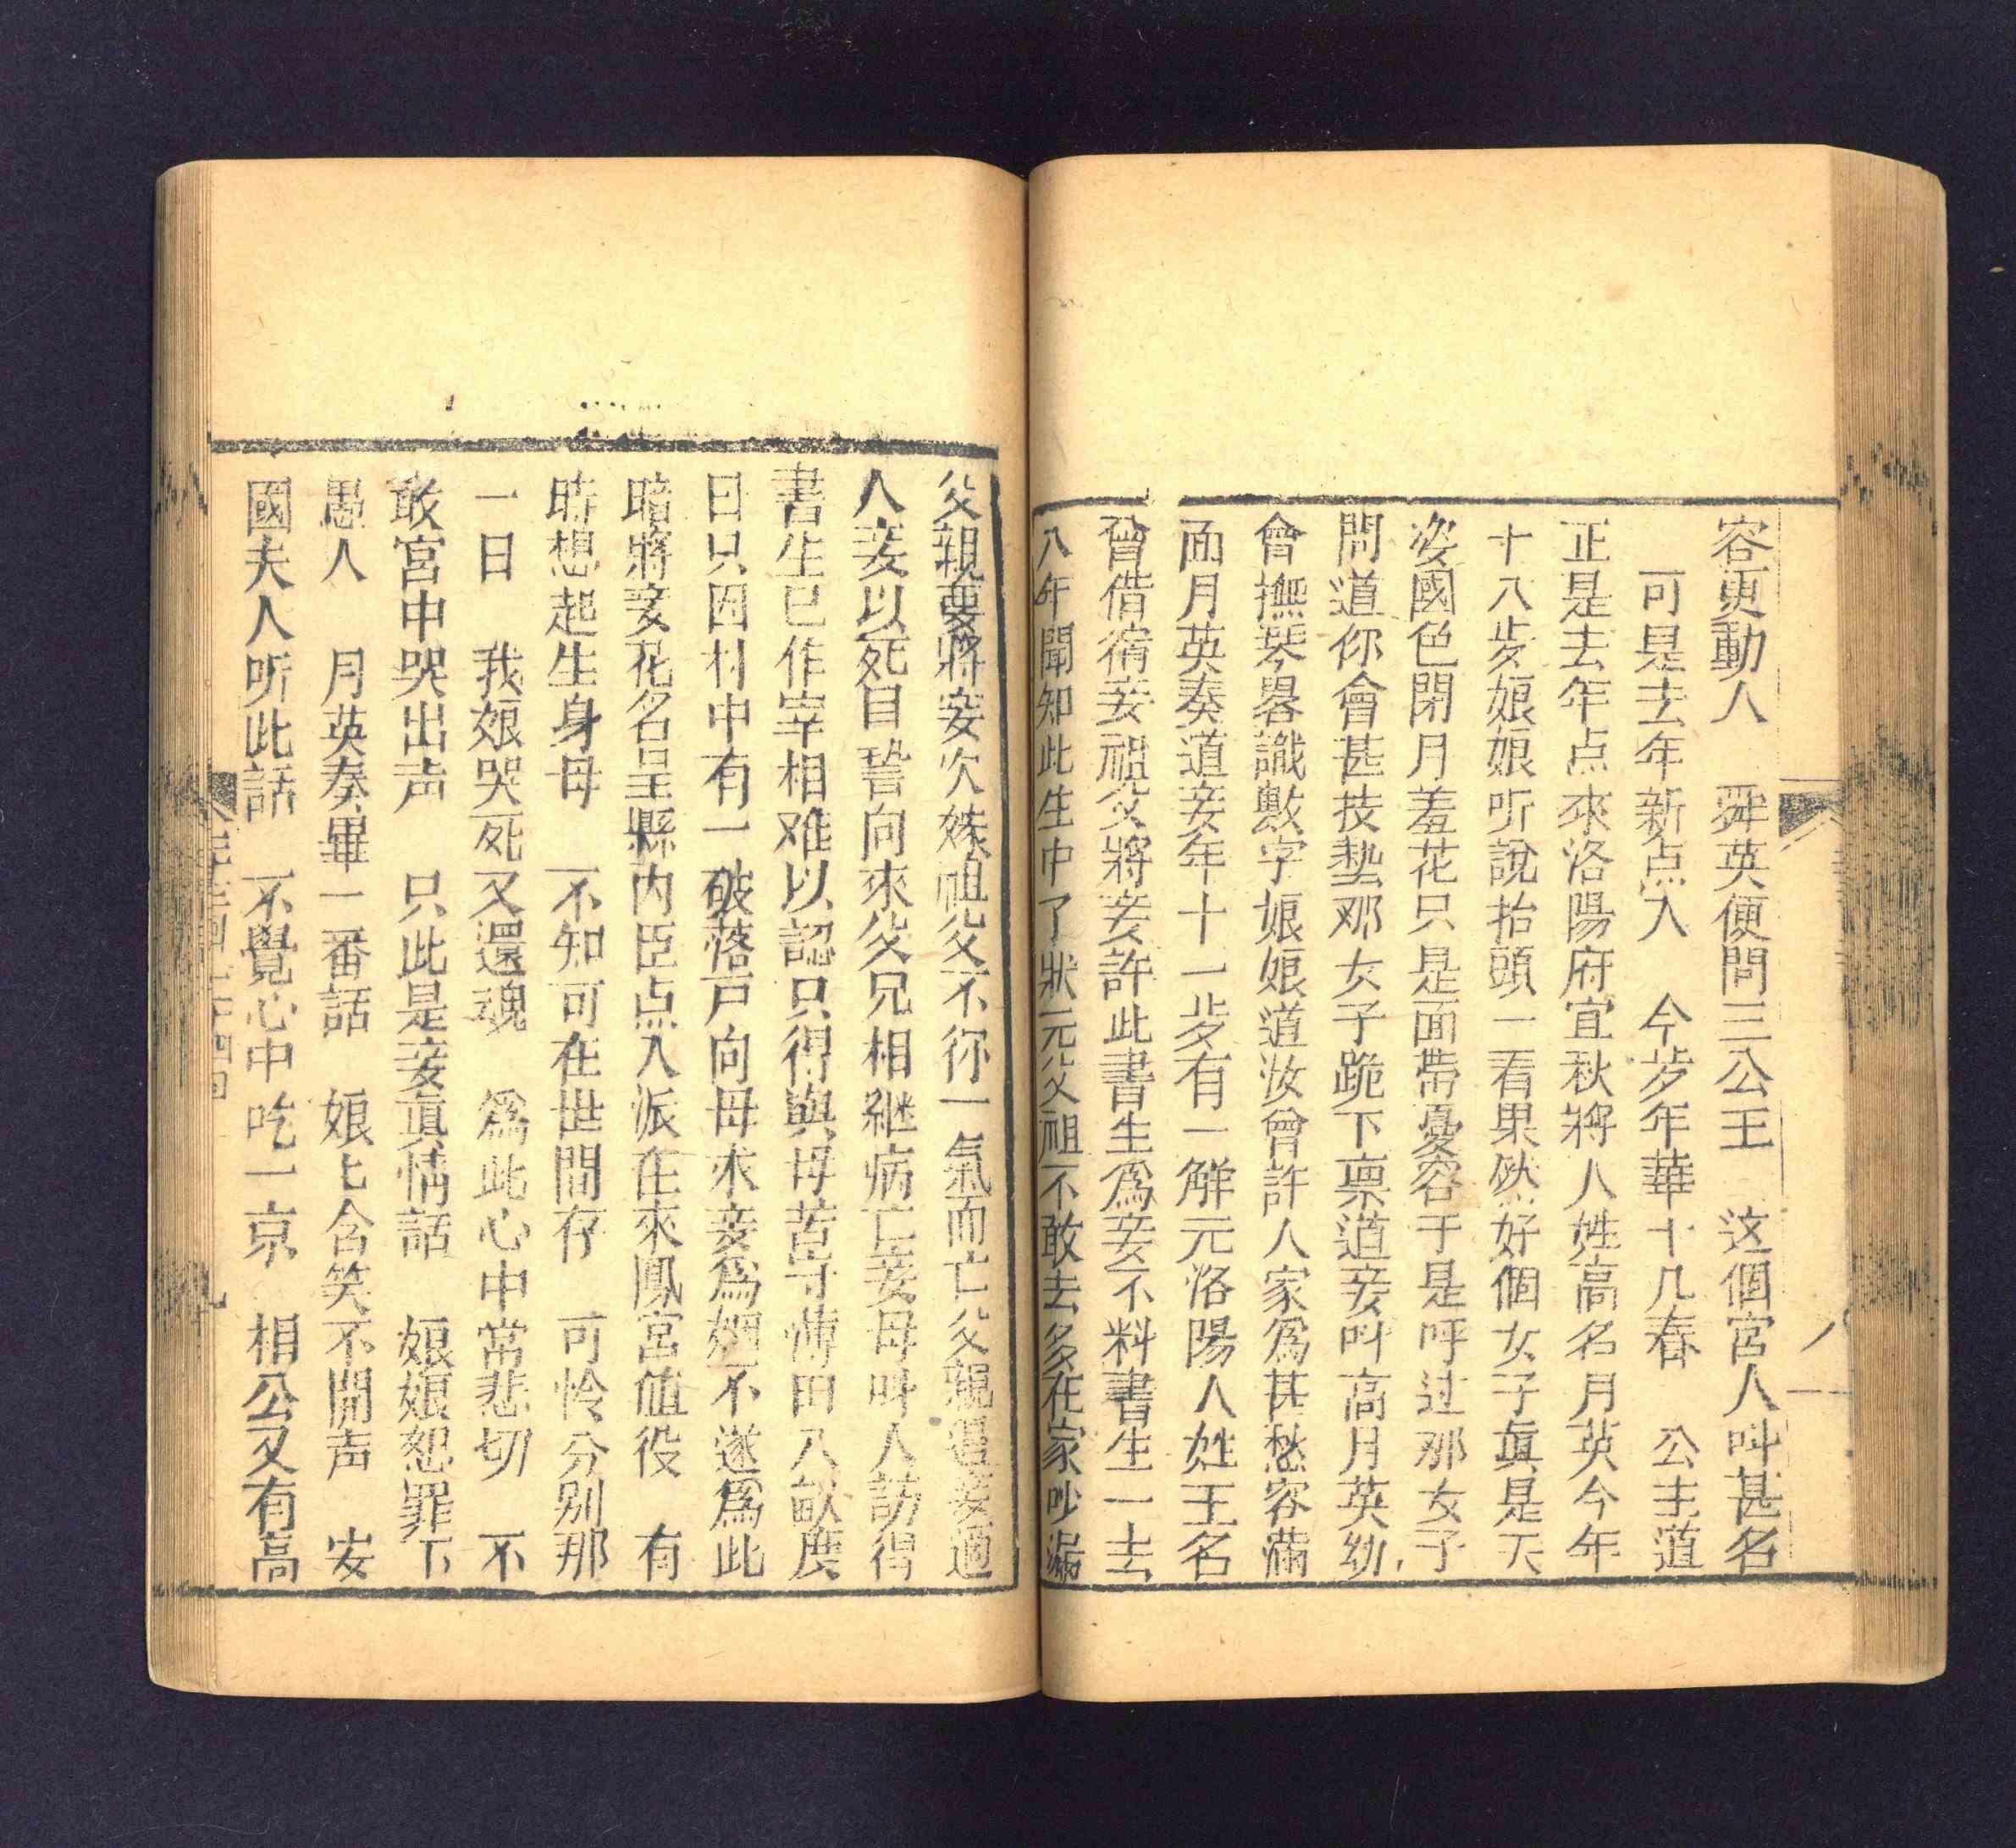 容更動人　舜英便問三公王　这個宮人叫甚名
可是去年新点入　今歩年華十几春　公主道
正是去年点來洛陽府宜秋將人姓高名月英今年
十八歩娘娘听說抬頭一看果然好個女子眞是天
姿國色閉月羞花只是面帶憂容于是呼过那女子
問道你會甚技藝那女子跪下禀道妾叫高月英幼
會撫琴畧識數字娘娘道汝曾許人家爲甚愁容滿
面月英奏道妾年十一歩有一解元洛陽人姓王名
曾借宿妾祖父將妾許此書生爲妾不料書生一去
八年聞知此生中了狀元父祖不敢去多在家吵漏
父親要將妾次妹祖父不你一氣而亡父親逼妾適
人妾以死自誓向來父兄相継病亡妾母叫人訪得
書生已作宰相难以認只得與母苦守薄田八畝度
日只因村中有一破落户向母求妾爲姻不遂爲此
暗將妾花名呈縣内臣点入派在來鳳宮值役　有
時想起生身母　不知可在世間存　可怜分別那
一日　我娘哭死又還魂　爲此心中常悲切　不
敢宮中哭出声　只此是妾眞情話　娘娘恕罪下
愚人　月英奏畢一番話　娘匕含笑不開声　安
國夫人听此話　不覺心中吃一京　相公又有高